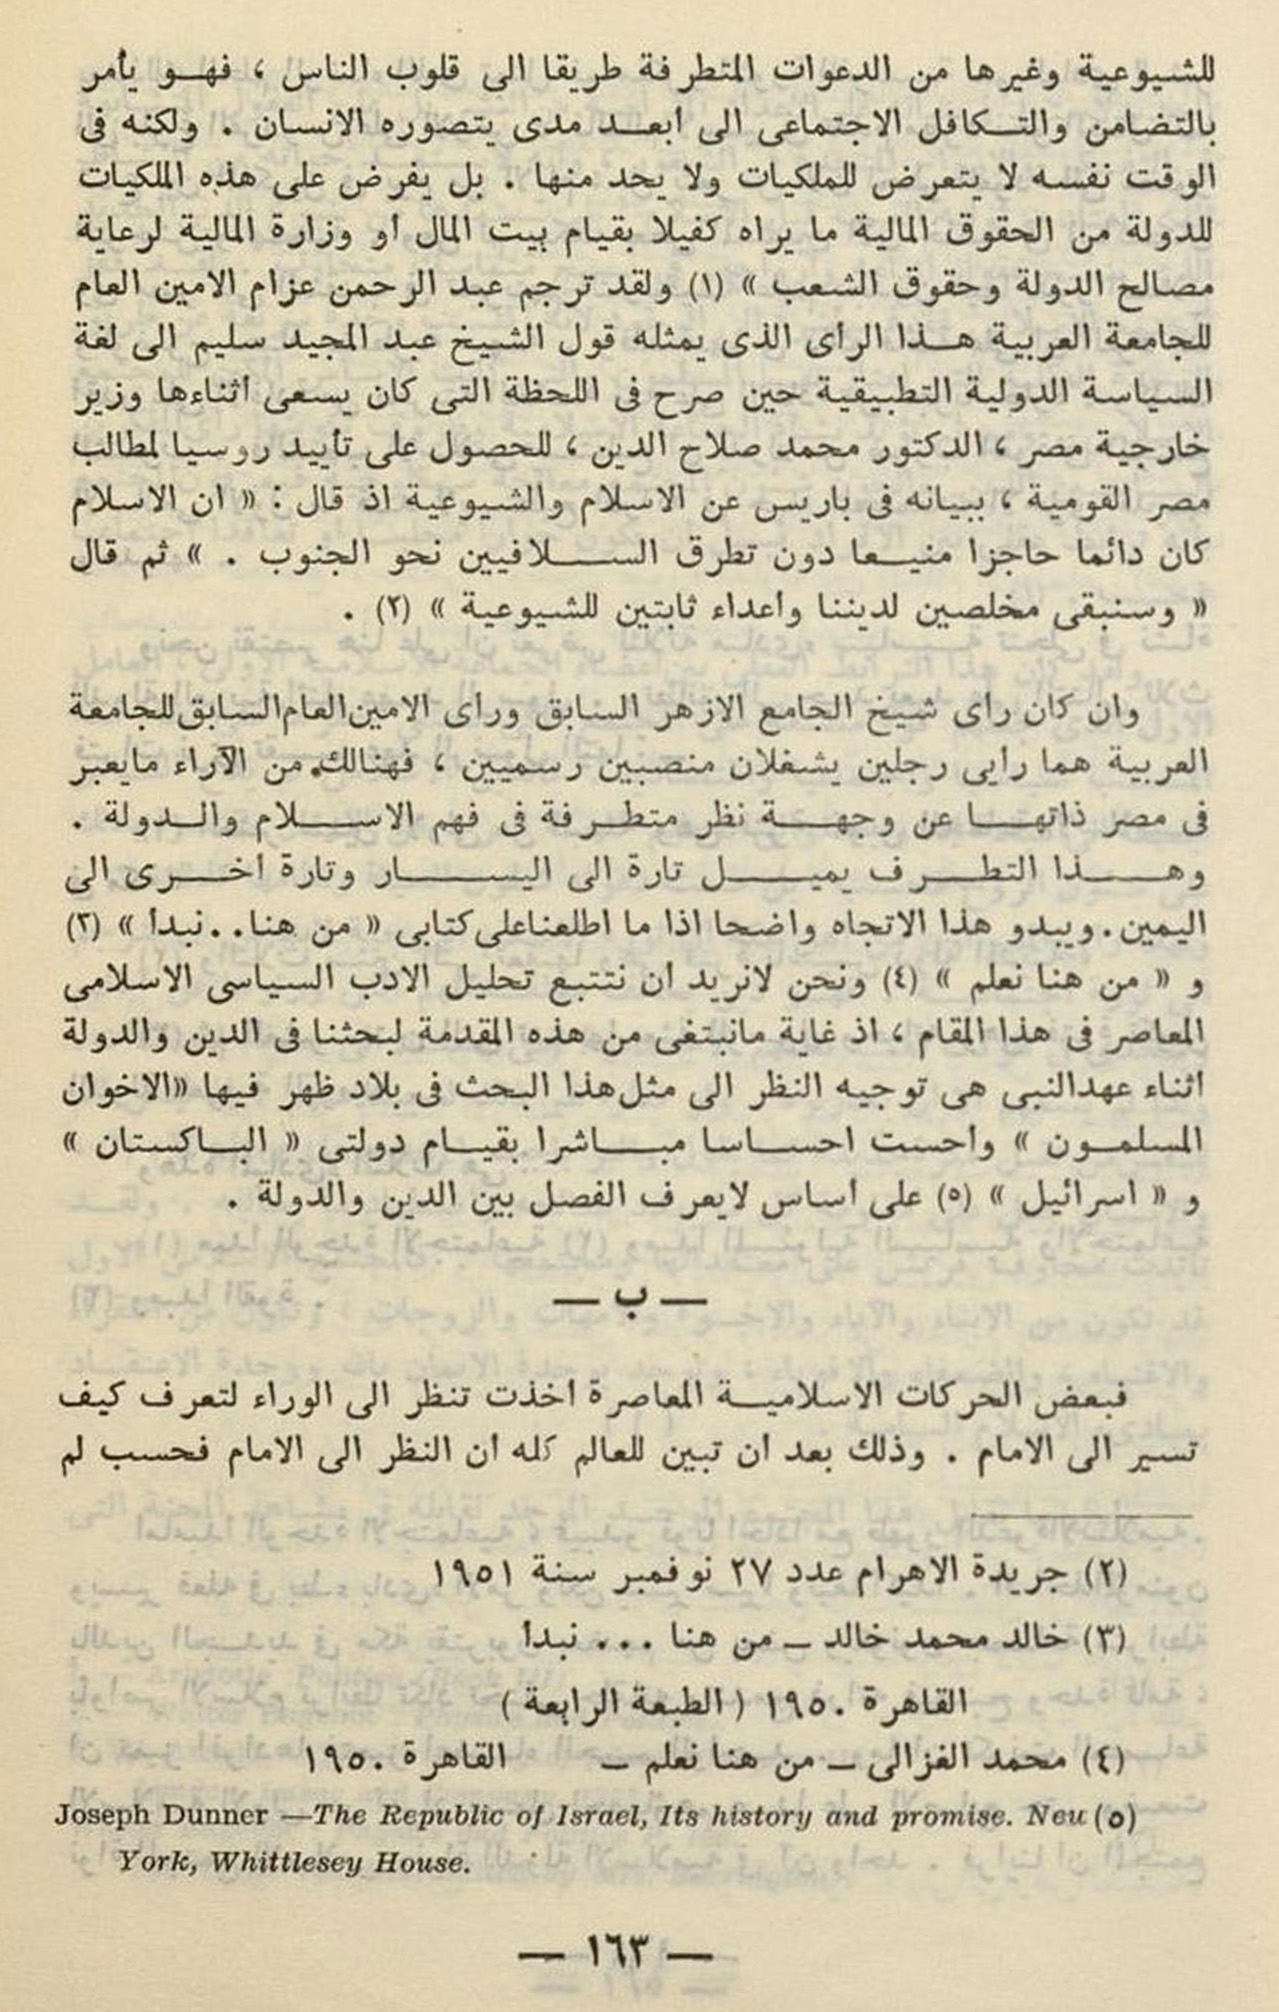 للشيوعية وغيرها من الدعوات المتطرفة طريقا الى قلوب الناس ، فهو يأمر
بالتضامن والتكافل الاجتماعى الى أبعد مدى يتصوره الانسان . ولكنه فى
الوقت نفسه لا يتعرض للملكيات ولا يحد منها . بل يفرض على هذه الملكيات
للدولة من الحقوق المالية ما يراه كفيلا بقيام بيت المال أو وزارة المالية لرعاية
مصالح الدولة وحقوق الشعب » (١) ولقد ترجم عبد الرحمن عزام الامين العام
للجامعة العربية هذا الرأى الذى يمثله قول الشيخ عبد المجيد سليم الى لغة
السياسة الدولية التطبيقية حين صرح فى اللحظة التى كان يسعى أثناءها وزير
خارجية مصر ، الدكتور محمد صلاح الدين ، للحصول على تأييد روسيا لمطالب
مصر القومية ، ببيانه فى باريس عن الاسلام والشيوعية اذ قال : « ان الاسلام
كان دائما حاجزا منيعا دون تطرق السلافيين نحو الجنوب . » ثم قال
« وسنبقى مخلصين لديننا وأعداء ثابتين للشيوعية » (٢) .
وان كان رأى شيخ الجامع الازهر السابق ورأى الامين العام السابق للجامعة
العربية هما رأيى رجلين يشغلان منصبين رسميين ، فهنالك من الآراء مايعبر
فى مصر ذاتها عن وجهة نظر متطرفة فى فهم الاسلام والدولة .
وهذا التطرف يميل تارة الى اليسار وتارة أخرى الى
اليمين . ويبدو هذا الاتجاه واضحا اذا ما اطلعنا على كتابى « من هنا . . نبدأ » (٣)
و « من هنا نعلم » (٤) ونحن لانريد أن نتتبع تحليل الادب السياسى الاسلامى
المعاصر فى هذا المقام ، اذ غاية مانبتغى من هذه المقدمة لبحثنا فى الدين والدولة
أثناء عهد النبى هى توجيه النظر الى مثل هذا البحث فى بلاد ظهر فيها «الاخوان
المسلمون » وأحست احساسا مباشرا بقيام دولتى « الباكستان »
و « اسرائيل » (٥) على أساس لايعرف الفصل بين الدين والدولة .
— ب —
فبعض الحركات الاسلامية المعاصرة أخذت تنظر الى الوراء لتعرف كيف
تسير الى الامام . وذلك بعد أن تبين للعالم كله أن النظر الى الامام فحسب لم
(٢) جريدة الاهرام عدد ٢٧ نوفمبر سنة ١٩٥١
(٣) خالد محمد خالد – من هنا . . . نبدأ
القاهرة ١٩٥٠ ( الطبعة الرابعة )
(٤) محمد الغزالى – من هنا نعلم – القاهرة ١٩٥٠
Joseph Dunner —The Republic of Israel, Its history and promise. Neu (٥)
York, Whittlesey House.
— ١٦٣ —